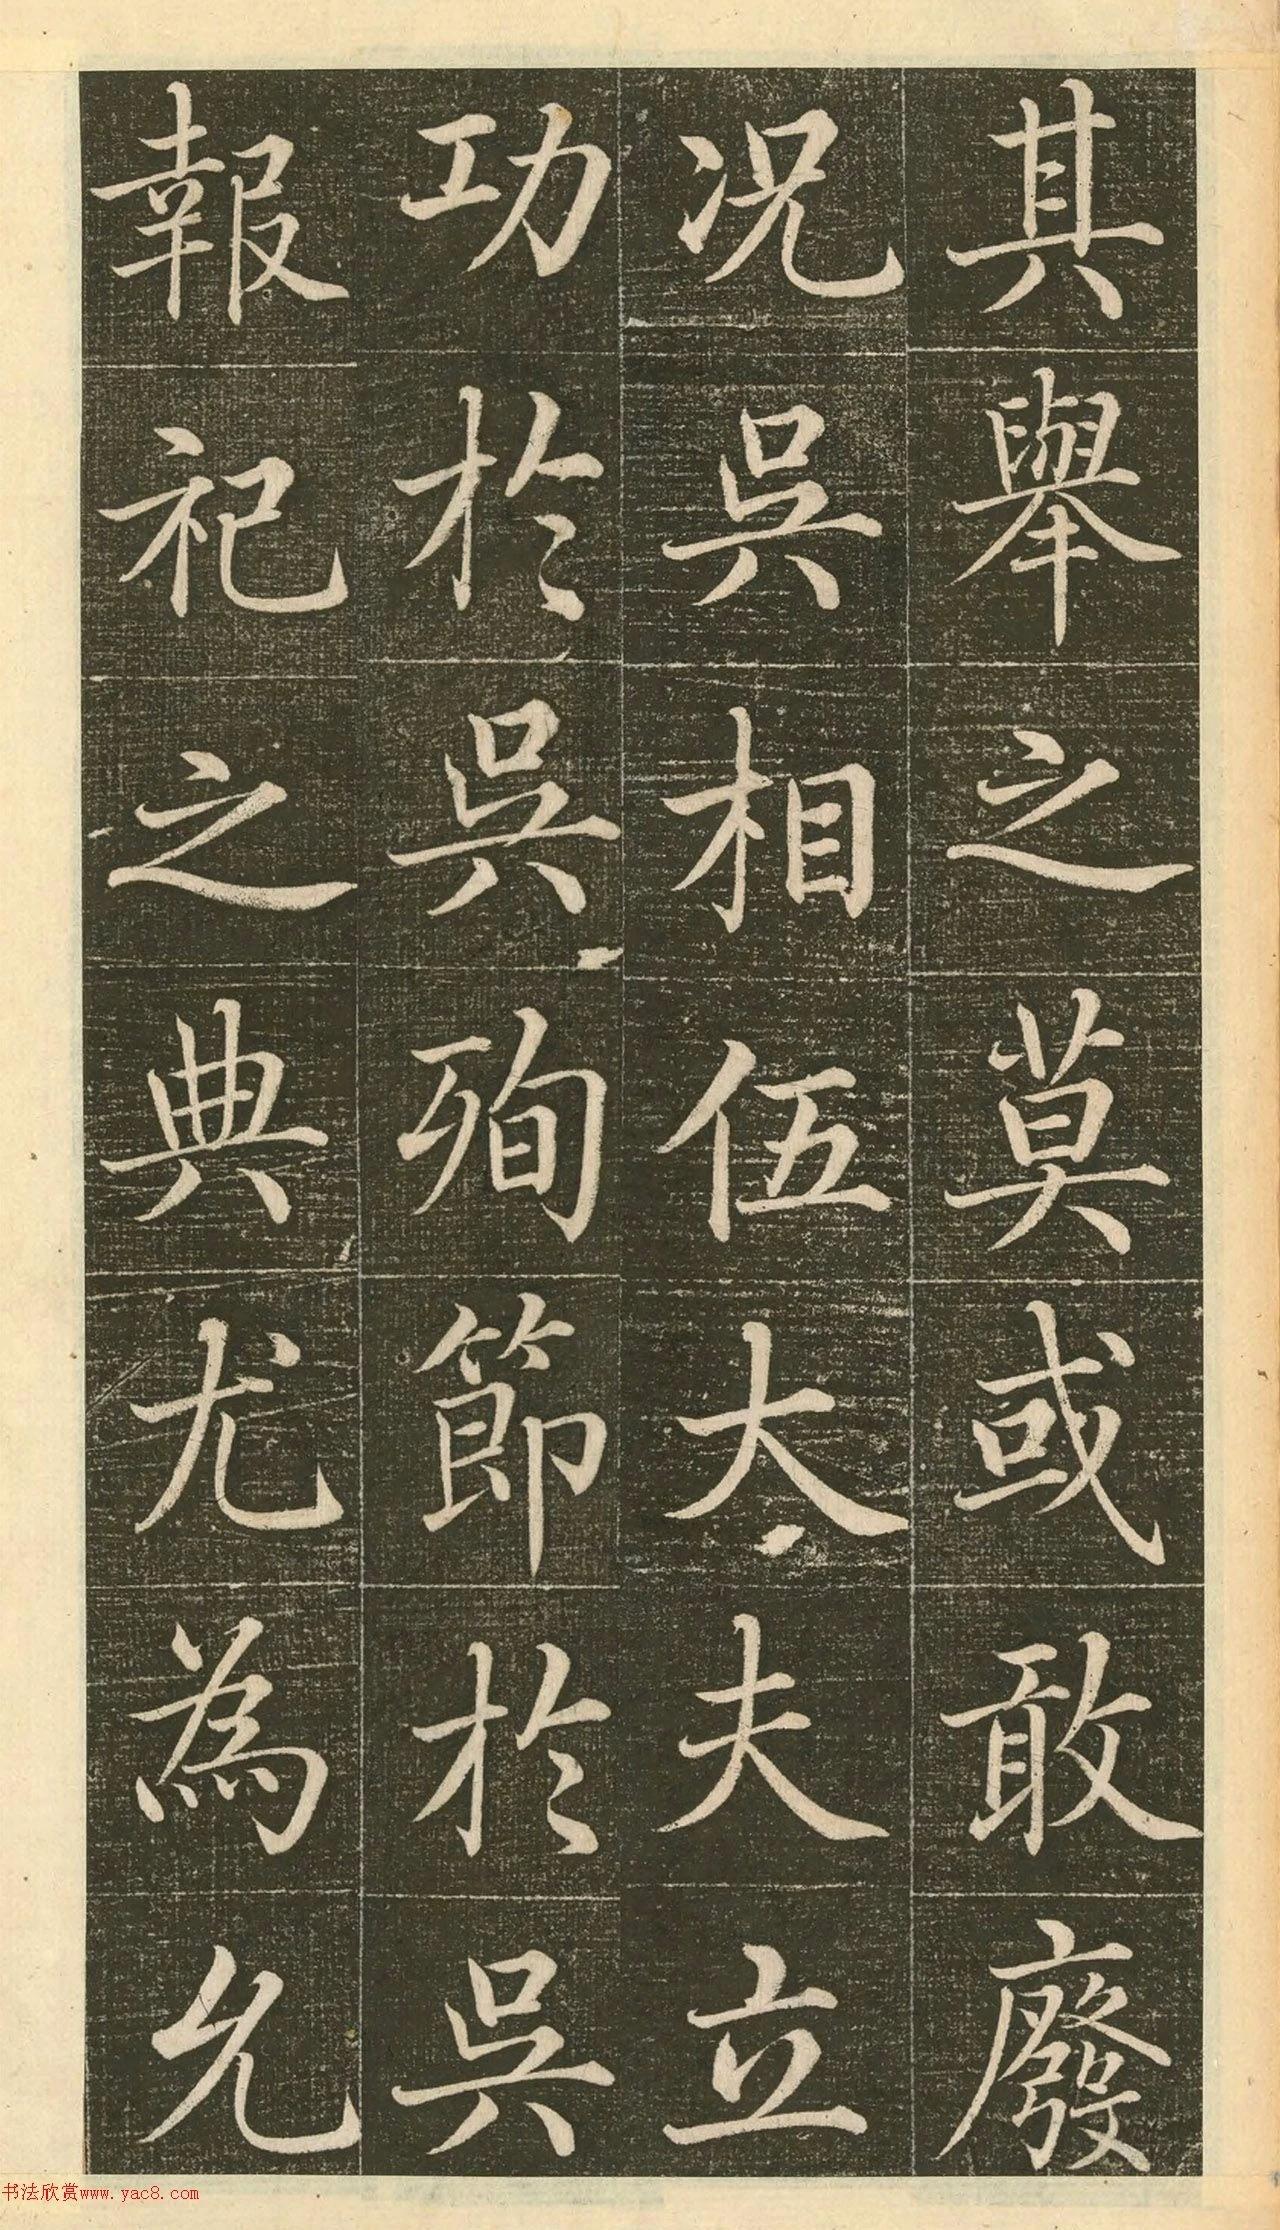 其舉之莫或敢廢
况吳相伍大夫立
功於吳殉節於吳
報祀之典尤為允
书法欣赏www.yac8.com